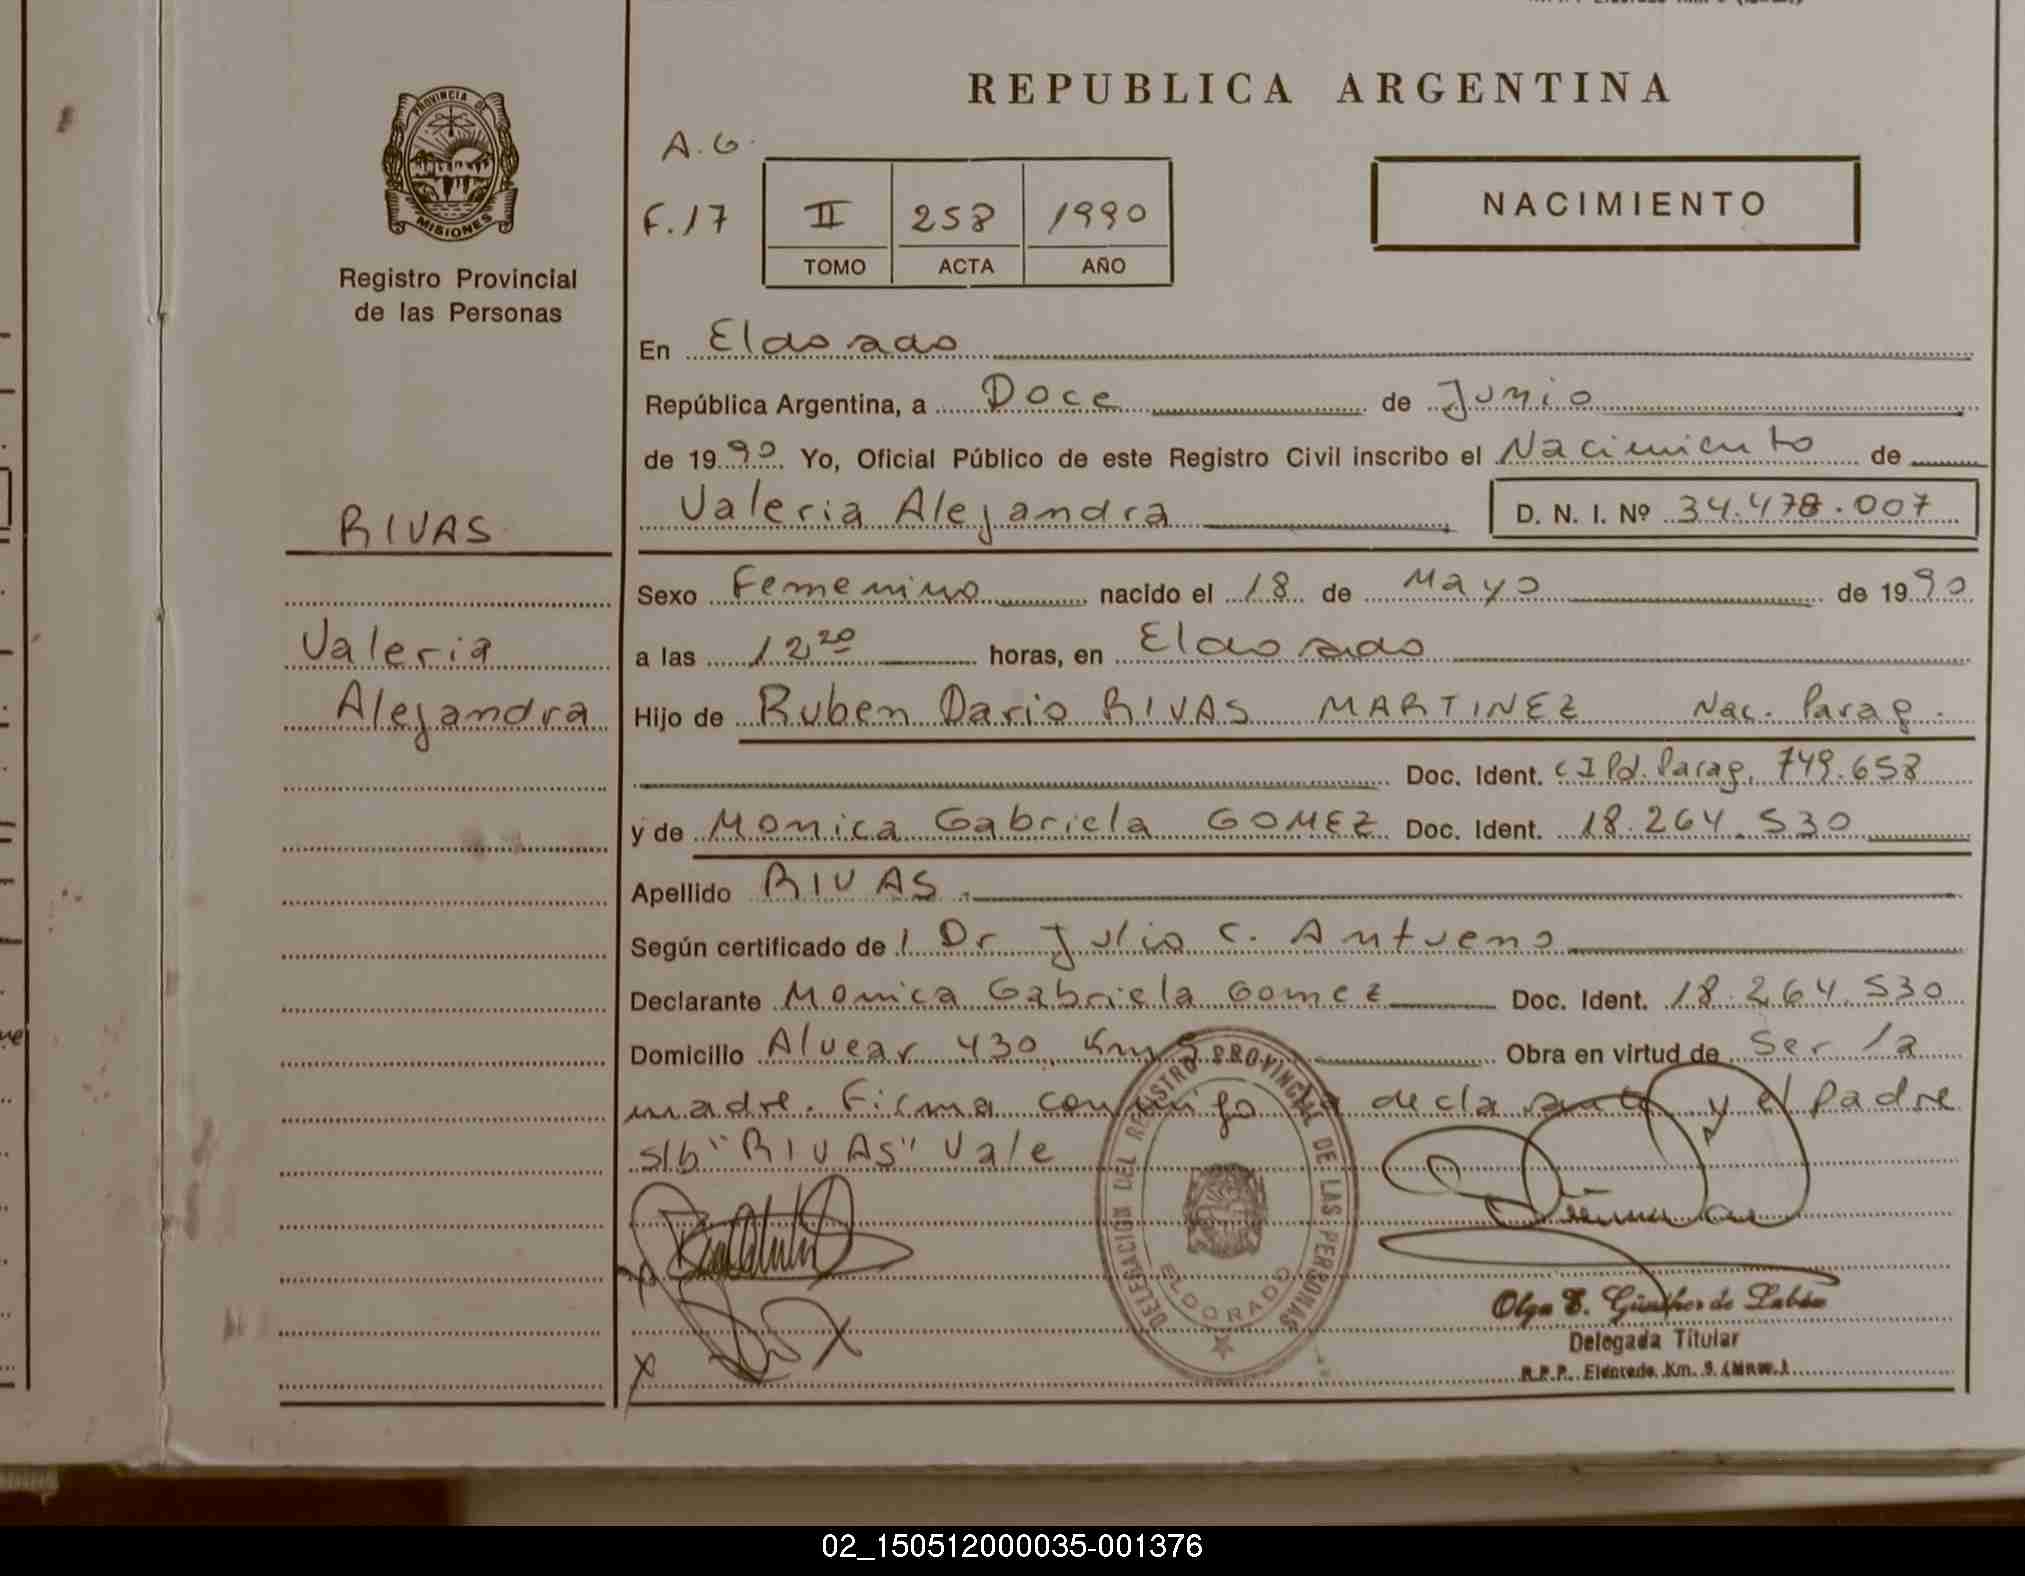 REPUBLICA ARGENTINA
PROVINCIA DE
MISIONES
Registro Provincial
de las Personas
A.G.
F.17
II 258 1990
TOMO ACTA AÑO
NACIMIENTO
En Eldorado
República Argentina, a Doce de Junio
de 1990 Yo, Oficial Público de este Registro Civil inscribo el Nacimiento de
Valeria Alejandra D. N. I. Nº 34.478.007
RIVAS
Valeria
Alejandra
Sexo Femenino nacido el 18 de Mayo de 1990
a las 12 20 horas, en Eldorado
Hijo de Ruben Dario RIVAS MARTINEZ Nac. Parag.
Doc. Ident. C I Pol. Parag. 749.658
y de Monica Gabriela GOMEZ Doc. Ident. 18.264.530
Apellido RIVAS.
Según certificado de l Dr Julio C. Antueno
Declarante Monica Gabriela Gomez Doc. Ident. 18.264.530
Domicilio Alvear 430 Km 9 Obra en virtud de Ser la
madre. Firma conmigo la declarante y el Padre
s/b "RIVAS" Vale
DELEGACION DEL REGISTRO PROVINCIAL DE LAS PERSONAS
ELDORADO
Olga E. Günther de Labán
Delegada Titular
R.P.P. Eldorado Km. 9 (Mnes.)
02_150512000035-001376